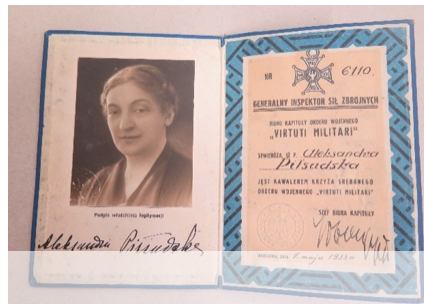 Podpis właściciela legitymacji
Aleksandra Piłsudska
NR 6110.
GENERALNY INSPEKTOR SIŁ ZBROJNYCH
BIURO KAPITUŁY ORDERU WOJENNEGO
„VIRTUTI MILITARI”
STWIERDZA, IŻ P. Aleksandra
Piłsudska
JEST KAWALEREM KRZYŻA SREBRNEGO
ORDERU WOJENNEGO „VIRTUTI MILITARI”
SZEF BIURA KAPITUŁY
WARSZAWA, DNIA maja